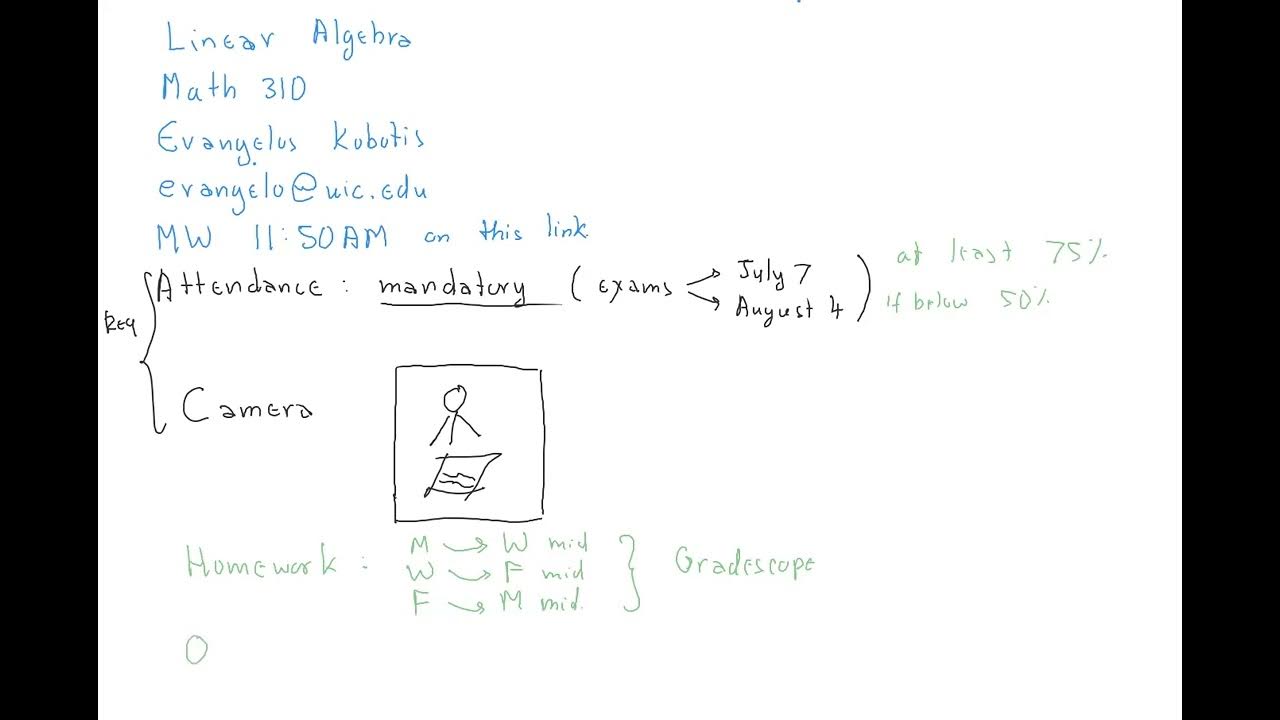 Linear Algebra
Math 310
Evangelos Kobotis
evangelo@uic.edu
MW 11:50AM on this link
Attendance : mandatory ( exams → July 7 → August 4 ) at least 75% if below 50%
Req
Camera
Homework : M → W mid
W → F mid
F → M mid.
} Gradescope
O